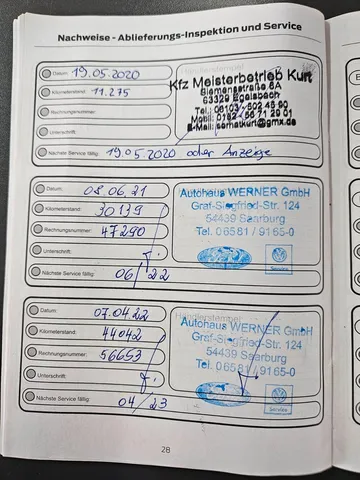 Nachweise - Ablieferungs-Inspektion und Service
Datum: 19.05.2020
Kilometerstand: 11.275
Rechnungsnummer:
Unterschrift:
Nächste Service fällig: 19.05.2020 oder Anzeige
Kfz Meisterbetrieb Kurt
Siemensstraße 6A
63329 Egelsbach
Tel.: 06103/502 45 90
E-Mail: serhatkurt@gmx.de
Datum: 08.06.21
Kilometerstand: 30139
Rechnungsnummer: 47290
Unterschrift:
Nächste Service fällig: 06/22
Autohaus WERNER GmbH
Graf-Siegfried-Str. 124
54439 Saarburg
Tel. 06581/9165-0
Service
Datum: 07.04.22
Kilometerstand: 44042
Rechnungsnummer: 56653
Unterschrift:
Nächste Service fällig: 04/23
Händlerstempel
Autohaus WERNER GmbH
Graf-Siegfried-Str. 124
54439 Saarburg
Tel. 06581/9165-0
Service
28